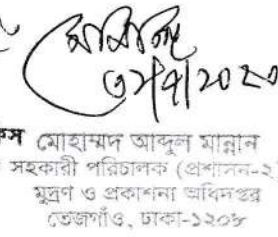 ৩২|৭|২০২০
কস মোহাম্মদ আব্দুল মান্নান
সহকারী পরিচালক (প্রশাসন-২
মুদ্রণ ও প্রকাশনা অধিদপ্তর
তেজগাঁও, ঢাকা-১২০৮